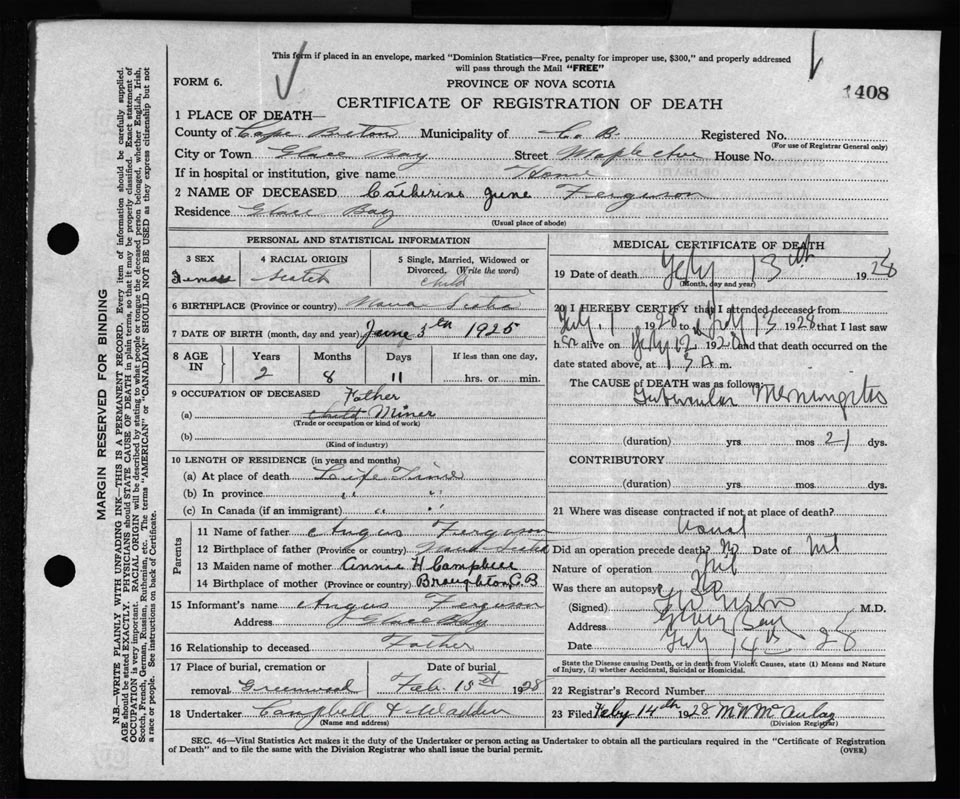 This form if placed in an envelope, marked "Dominion Statistics—Free, penalty for improper use, $300," and properly addressed
will pass through the Mail "FREE"
FORM 6.
PROVINCE OF NOVA SCOTIA
1408
CERTIFICATE OF REGISTRATION OF DEATH
1 PLACE OF DEATH—
County of Cape Breton Municipality of C. B. Registered No.
(For use of Registrar General only)
City or Town Glace Bay Street Maple Ave House No.
If in hospital or institution, give name Home
2 NAME OF DECEASED Catherine June Ferguson
Residence Glace Bay
(Usual place of abode)
PERSONAL AND STATISTICAL INFORMATION
3 SEX 4 RACIAL ORIGIN 5 Single, Married, Widowed or
Divorced. (Write the word)
Female Scotch child
6 BIRTHPLACE (Province or country) Nova Scotia
7 DATE OF BIRTH (month, day and year) June 3th 1925
8 AGE IN Years Months Days If less than one day,
2 8 11 hrs. or min.
9 OCCUPATION OF DECEASED Father
(a) child Miner
(Trade or occupation or kind of work)
(b)
(Kind of industry)
10 LENGTH OF RESIDENCE (in years and months)
(a) At place of death Life Time
(b) In province " "
(c) In Canada (if an immigrant) " "
Parents
11 Name of father Angus Ferguson
12 Birthplace of father (Province or country) Nova Scotia
13 Maiden name of mother Annie H Campbell
14 Birthplace of mother (Province or country) Broughton C.B
15 Informant's name Angus Ferguson
Address Glace Bay
16 Relationship to deceased Father
17 Place of burial, cremation or Date of burial
removal Greenwood Feb. 15st 1928
18 Undertaker Campbell & Wadden
(Name and address)
MEDICAL CERTIFICATE OF DEATH
19 Date of death Feby 13th 1928
(Month, day and year)
20 I HEREBY CERTIFY that I attended deceased from
1 1928 to Feby 13 1928 that I last saw
h er alive on Feby 12 1928 and that death occurred on the
date stated above, at 3 A m.
The CAUSE OF DEATH was as follows:
Tubercular Meningitis
(duration) yrs. mos 21 dys.
CONTRIBUTORY
(duration) yrs. mos. dys.
21 Where was disease contracted if not at place of death?
Usual
Did an operation precede death? No Date of Nil
Nature of operation Nil
Was there an autopsy? No
(Signed) M.D.
Address Glace Bay
Date Feby 14th 28
State the Disease causing Death, or in death from Violent Causes, state (1) Means and Nature
of Injury, (2) whether Accidental, Suicidal or Homicidal.
22 Registrar's Record Number
23 Filed Feby 14th 1928 M W McAulay
(Division Registrar)
SEC. 46—Vital Statistics Act makes it the duty of the Undertaker or person acting as Undertaker to obtain all the particulars required in the "Certificate of Registration
of Death" and to file the same with the Division Registrar who shall issue the burial permit.
(OVER)
MARGIN RESERVED FOR BINDING
N.B.—WRITE PLAINLY WITH UNFADING INK—THIS IS A PERMANENT RECORD. Every item of information should be carefully supplied.
AGE should be stated EXACTLY. PHYSICIANS should STATE CAUSE OF DEATH in plain terms, so that it may be properly classified. Exact statement of
OCCUPATION is very important. RACIAL ORIGIN will be described by stating to what people or tongue the deceased person belonged, whether English, Irish,
Scotch, French, German, Russian, Ruthenian, etc. The terms "AMERICAN" or "CANADIAN" SHOULD NOT BE USED as they express citizenship but not
a race or people. See instructions on back of Certificate.